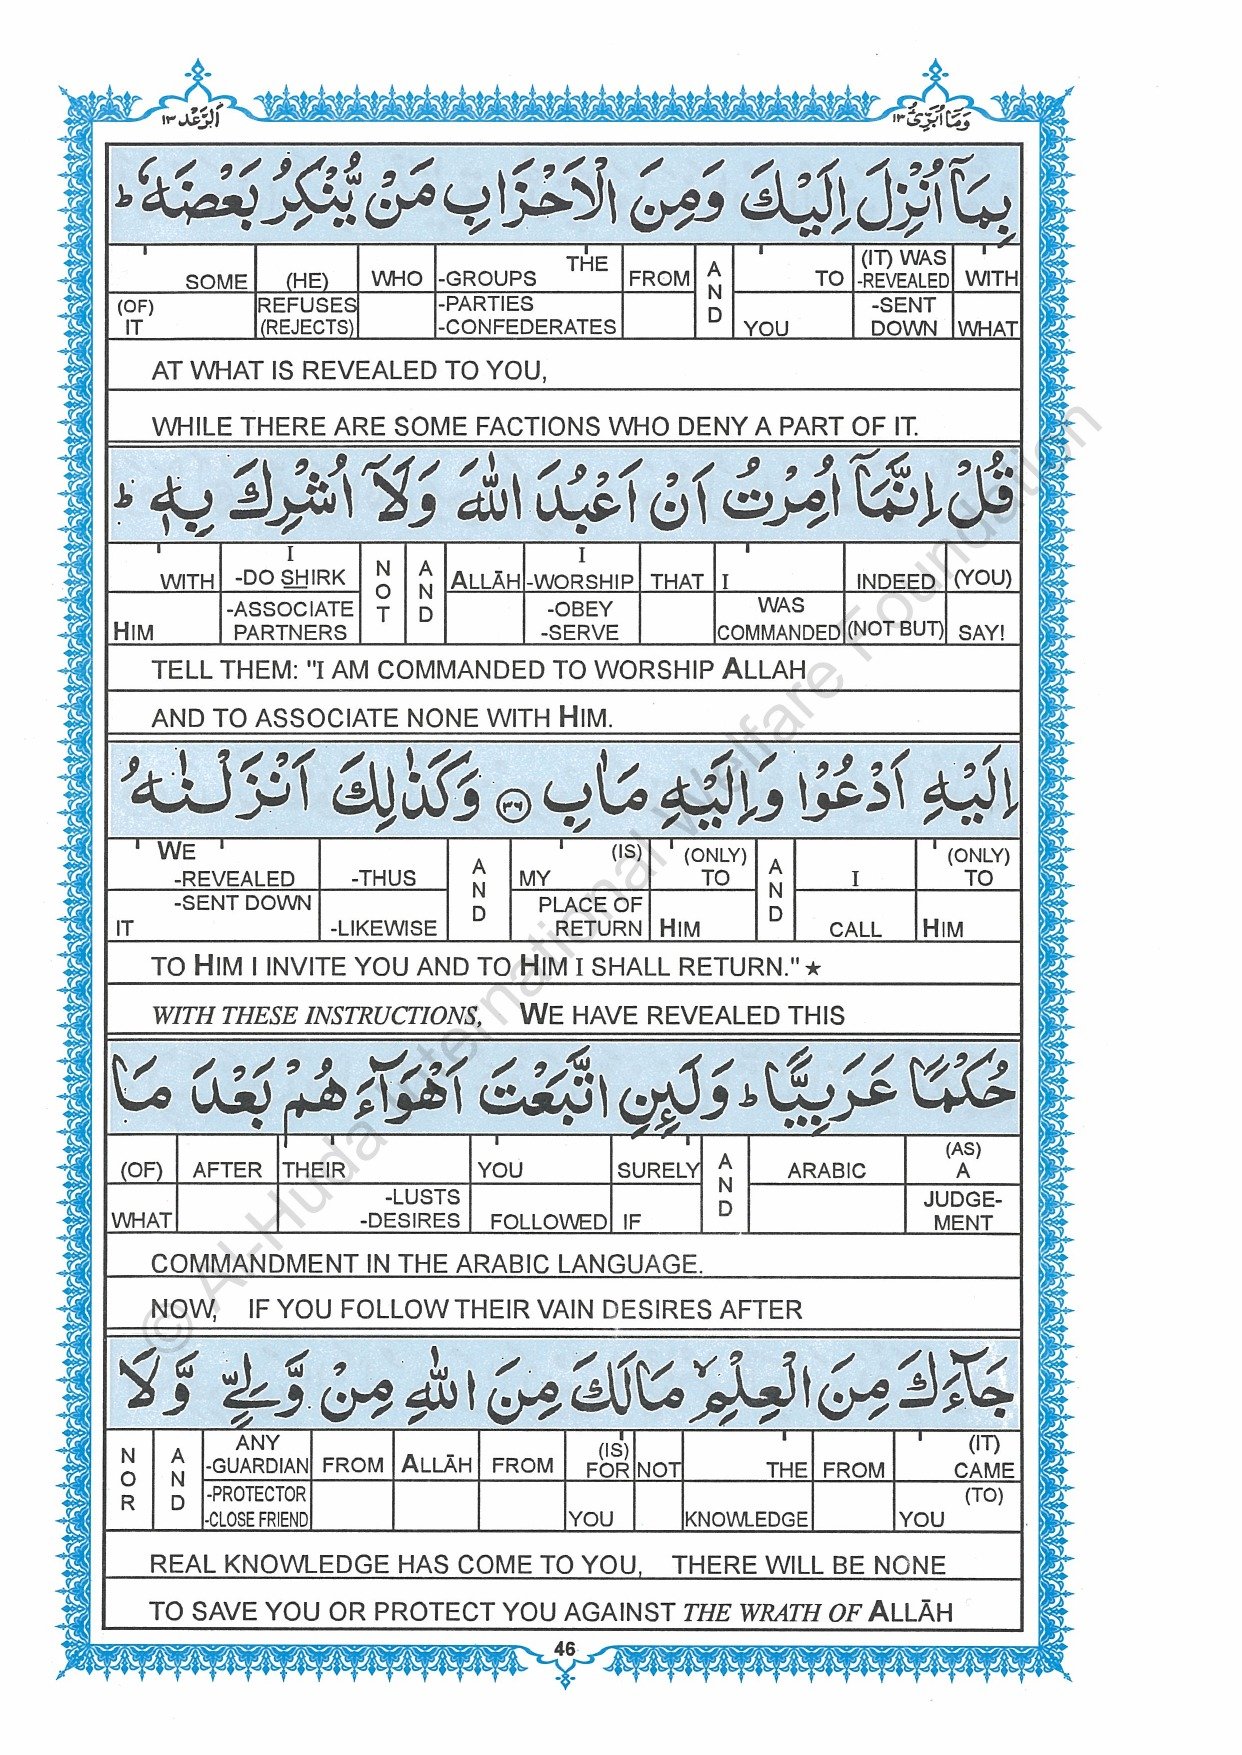 وَمَآ اُبَرِّئُ ١٣
اَلرَّعْد ١٣
بِمَآ اُنْزِلَ اِلَيْكَ وَمِنَ الْاَحْزَابِ مَنْ يُّنْكِرُ بَعْضَهٗ ؕ
WITH WHAT
(IT) WAS -REVEALED -SENT DOWN
TO YOU
AND
FROM
THE -GROUPS -PARTIES -CONFEDERATES
WHO
(HE) REFUSES (REJECTS)
SOME (OF) IT
AT WHAT IS REVEALED TO YOU,
WHILE THERE ARE SOME FACTIONS WHO DENY A PART OF IT.
قُلْ اِنَّمَآ اُمِرْتُ اَنْ اَعْبُدَ اللّٰهَ وَلَآ اُشْرِكَ بِهٖ ؕ
(YOU) SAY!
INDEED (NOT BUT)
I WAS COMMANDED
THAT
I -WORSHIP -OBEY -SERVE
ALLĀH
AND
NOT
I -DO SHIRK -ASSOCIATE PARTNERS
WITH HIM
TELL THEM: "I AM COMMANDED TO WORSHIP ALLAH
AND TO ASSOCIATE NONE WITH HIM.
اِلَيْهِ اَدْعُوْا وَاِلَيْهِ مَاٰبِ ﴿٣٦﴾ وَكَذٰلِكَ اَنْزَلْنٰهُ
(ONLY) TO HIM
I CALL
AND
(ONLY) TO HIM
(IS) MY PLACE OF RETURN
AND
-THUS -LIKEWISE
WE -REVEALED -SENT DOWN IT
TO HIM I INVITE YOU AND TO HIM I SHALL RETURN." ★
WITH THESE INSTRUCTIONS, WE HAVE REVEALED THIS
حُكْمًا عَرَبِيًّا ؕ وَلَئِنِ اتَّبَعْتَ اَهْوَآءَهُمْ بَعْدَ مَا
(AS) A JUDGE-MENT
ARABIC
AND
SURELY IF
YOU FOLLOWED
THEIR -LUSTS -DESIRES
AFTER
(OF) WHAT
COMMANDMENT IN THE ARABIC LANGUAGE.
NOW, IF YOU FOLLOW THEIR VAIN DESIRES AFTER
جَآءَكَ مِنَ الْعِلْمِ ۙ مَا لَكَ مِنَ اللّٰهِ مِنْ وَّلِيٍّ وَّلَا
(IT) CAME (TO) YOU
FROM
THE KNOWLEDGE
NOT
(IS) FOR YOU
FROM
ALLĀH
FROM
ANY -GUARDIAN -PROTECTOR -CLOSE FRIEND
AND
NOR
REAL KNOWLEDGE HAS COME TO YOU, THERE WILL BE NONE
TO SAVE YOU OR PROTECT YOU AGAINST THE WRATH OF ALLĀH
46
© Al-Huda International Welfare Foundation